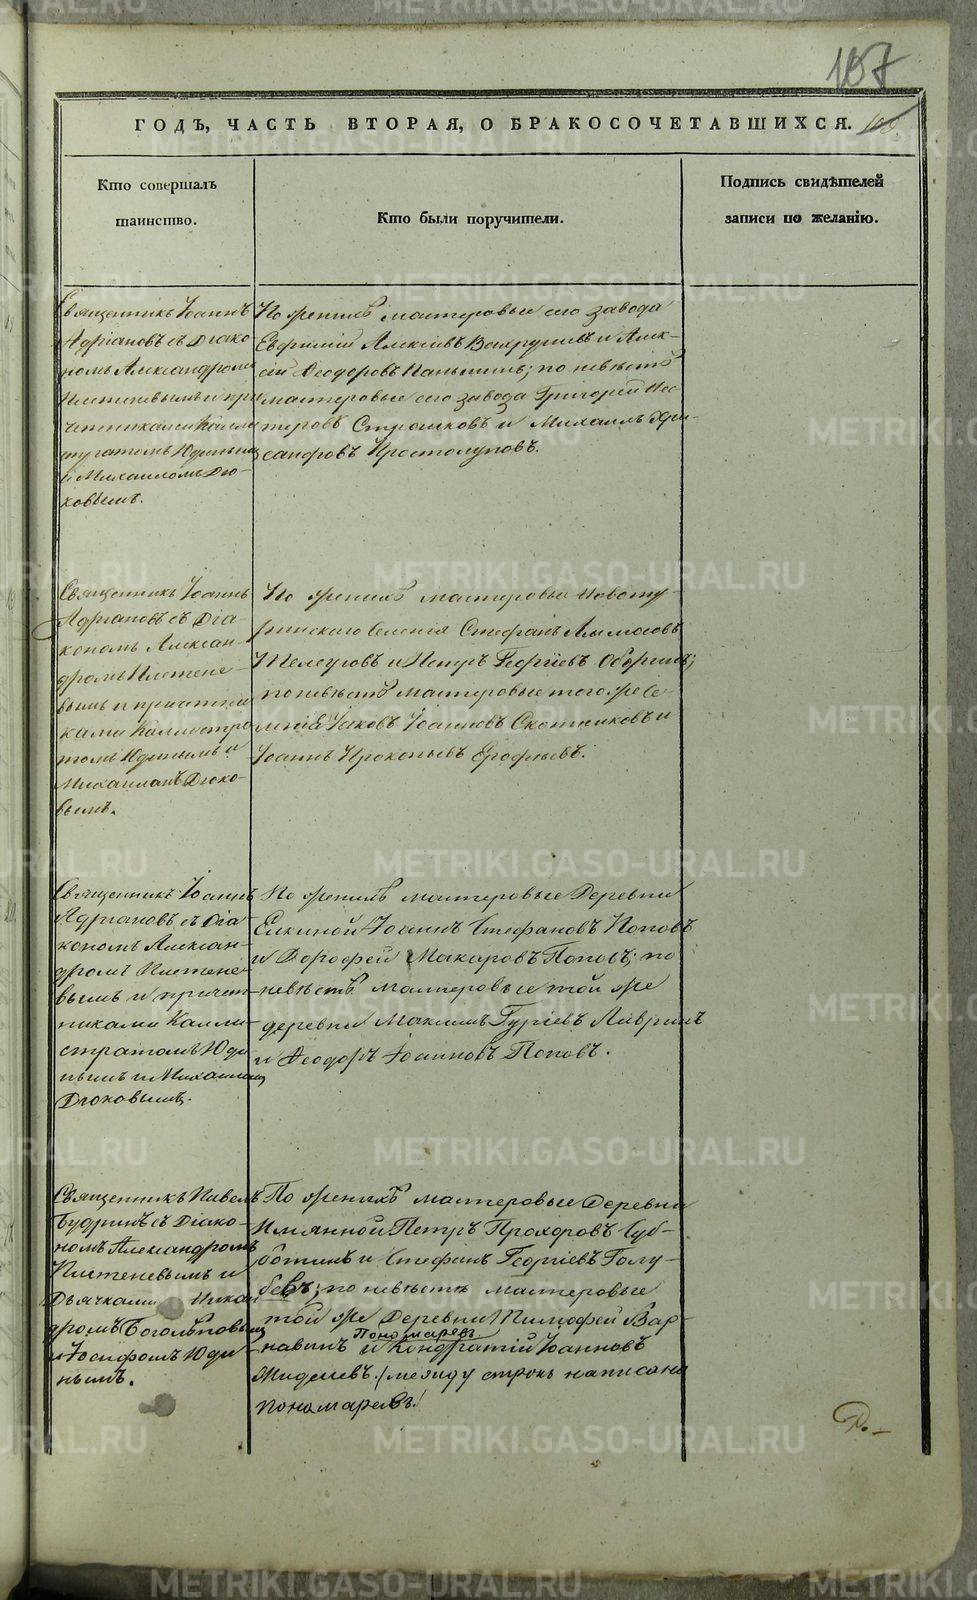 107
ГОДЪ, ЧАСТЬ ВТОРАЯ, О БРАКОСОЧЕТАВШИХСЯ.
Кто совершалъ
таинство.
Кто были поручители.
Подпись свидѣтелей
записи по желанію.
Священникъ Іоаннъ
Адріановъ съ Діако-
номъ Александромъ
Плетеневымъ и при
четниками Калли
стратомъ Юдинымъ
и Михаиломъ Дю-
ковымъ.
По женихѣ мастеровые сего завода
Евфимій Алексѣевъ Вахрушевъ и Алек-
сій Ѳеодоровъ Паньшинъ; по невѣстѣ
мастеровые сего завода Григорей Нес-
теровъ Строшковъ и Михаилъ Хри-
санфовъ Простолуповъ.
Священникъ Іоаннъ
Адріановъ съ Діа-
кономъ Алексан-
дромъ Плетене-
вымъ и причетни
ками Каллистра
томъ Юдинымъ и
Михаиломъ Дюко-
вымъ.
По женихѣ мастеровые Новоту-
ринскаго Селенія Стефанъ
и Петръ Георгіевъ Оборинъ;
по невѣстѣ мастеровые того же Се-
ленія Іаковъ Іоанновъ Скотниковъ и
Іоаннъ Прокопьевъ Ерофѣевъ.
Священникъ Іоаннъ
Адріановъ съ Діа
кономъ Алексан-
дромъ Плетене
вымъ и причет
никами Калли
стратомъ Юди
нымъ и Михаиломъ
Дюковымъ.
По женихѣ мастеровые Деревни
Елкиной Іоаннъ Стефановъ Поповъ
и Дорофей Макаровъ Поповъ; по
невѣстѣ мастеровые той же
деревни Максимъ Гуріевъ Лавринъ
и Ѳеодоръ Іоанновъ Поповъ.
Священникъ Павелъ
Будринъ съ Діако-
номъ Александромъ
Плетеневымъ и
Дьячками Никан
дромъ Боголѣповымъ
и Іосифомъ Юди
нымъ.
По женихѣ мастеровые Деревни
Имянной Петръ Прохоровъ Суб-
ботинъ и Стефанъ Георгіевъ Голу-
бевъ; по невѣстѣ мастеровые
той же Деревни Тимофей Вар-
Пономаревъ
навинъ и Кондратій Іоанновъ
Мидешевъ. /между строкъ написано
Пономаревъ/
METRIKI.GASO-URAL.RU